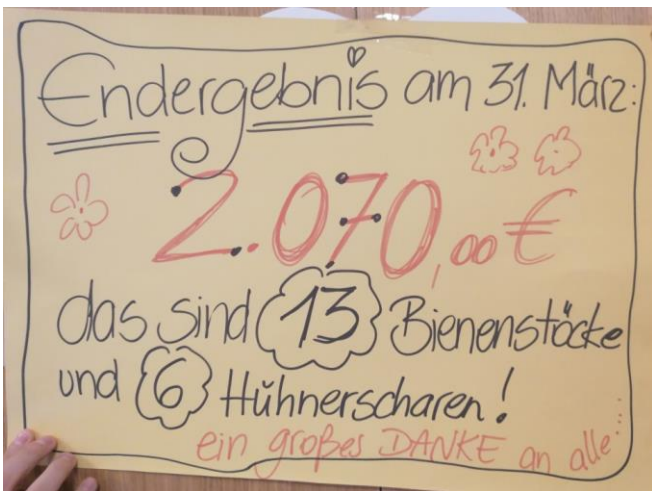 Endergebnis am 31. März:
2.070,00 €
das sind 13 Bienenstöcke
und 6 Hühnerscharen!
ein großes DANKE an alle....